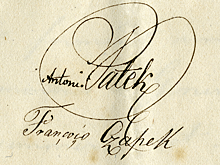 Antoni Patek
François Czapek